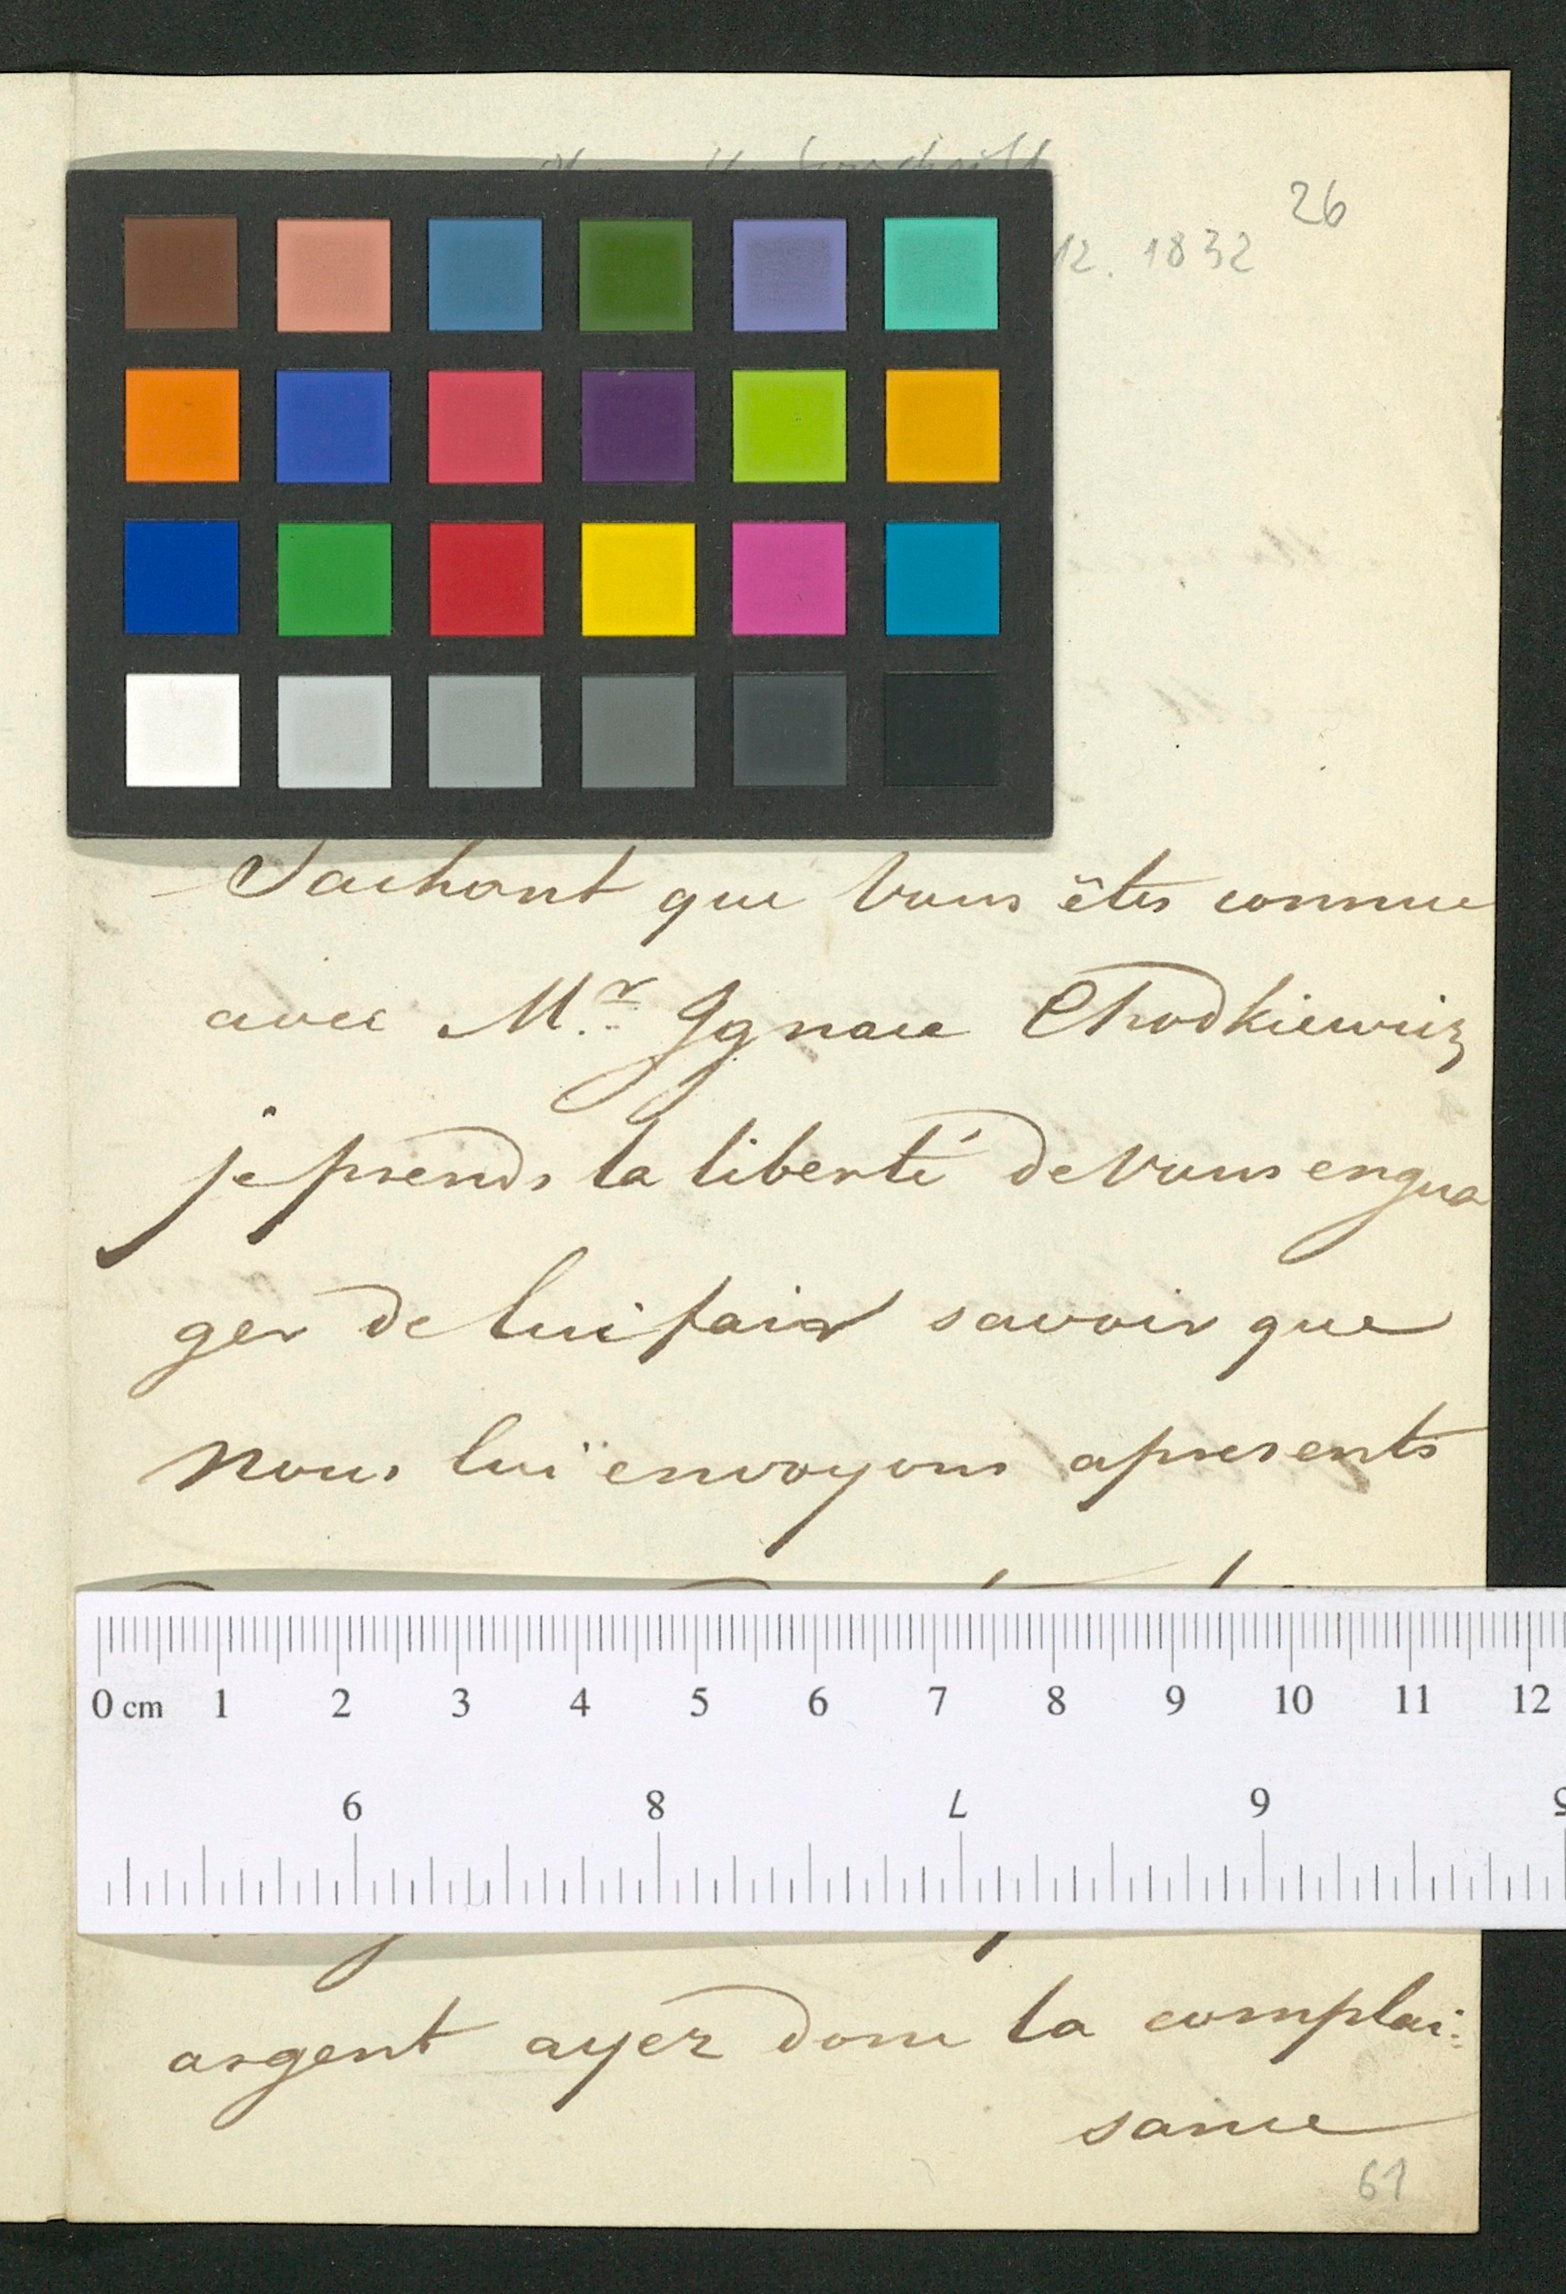 26
12. 1832
Sachant que Vous êtes connue
avec M.r Ignace Chodkiewicz
je prends la liberté de Vous engua
ger de lui fair savoir que
Nous lui envoyons apresents
0 cm 1 2 3 4 5 6 7 8 9 10 11 12
9 8 7 6 5
argent ayez donc la complai:
sance
61